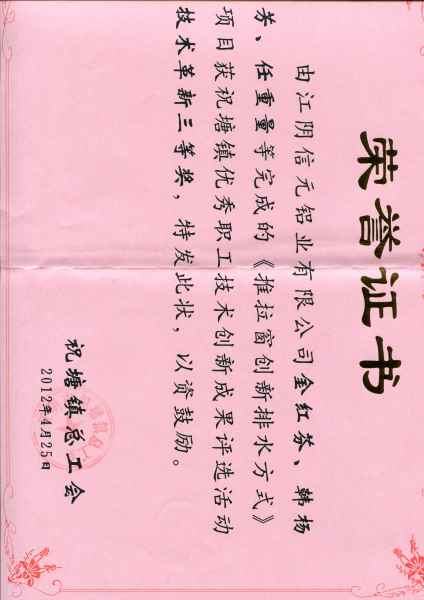 荣誉证书
由江阴信元铝业有限公司金红芬、韩杨
芬、任重量等完成的《推拉窗创新排水方式》
项目获祝塘镇优秀职工技术创新成果评选活动
技术革新三等奖，特发此状，以资鼓励。
祝塘镇总工会
2012年4月25日